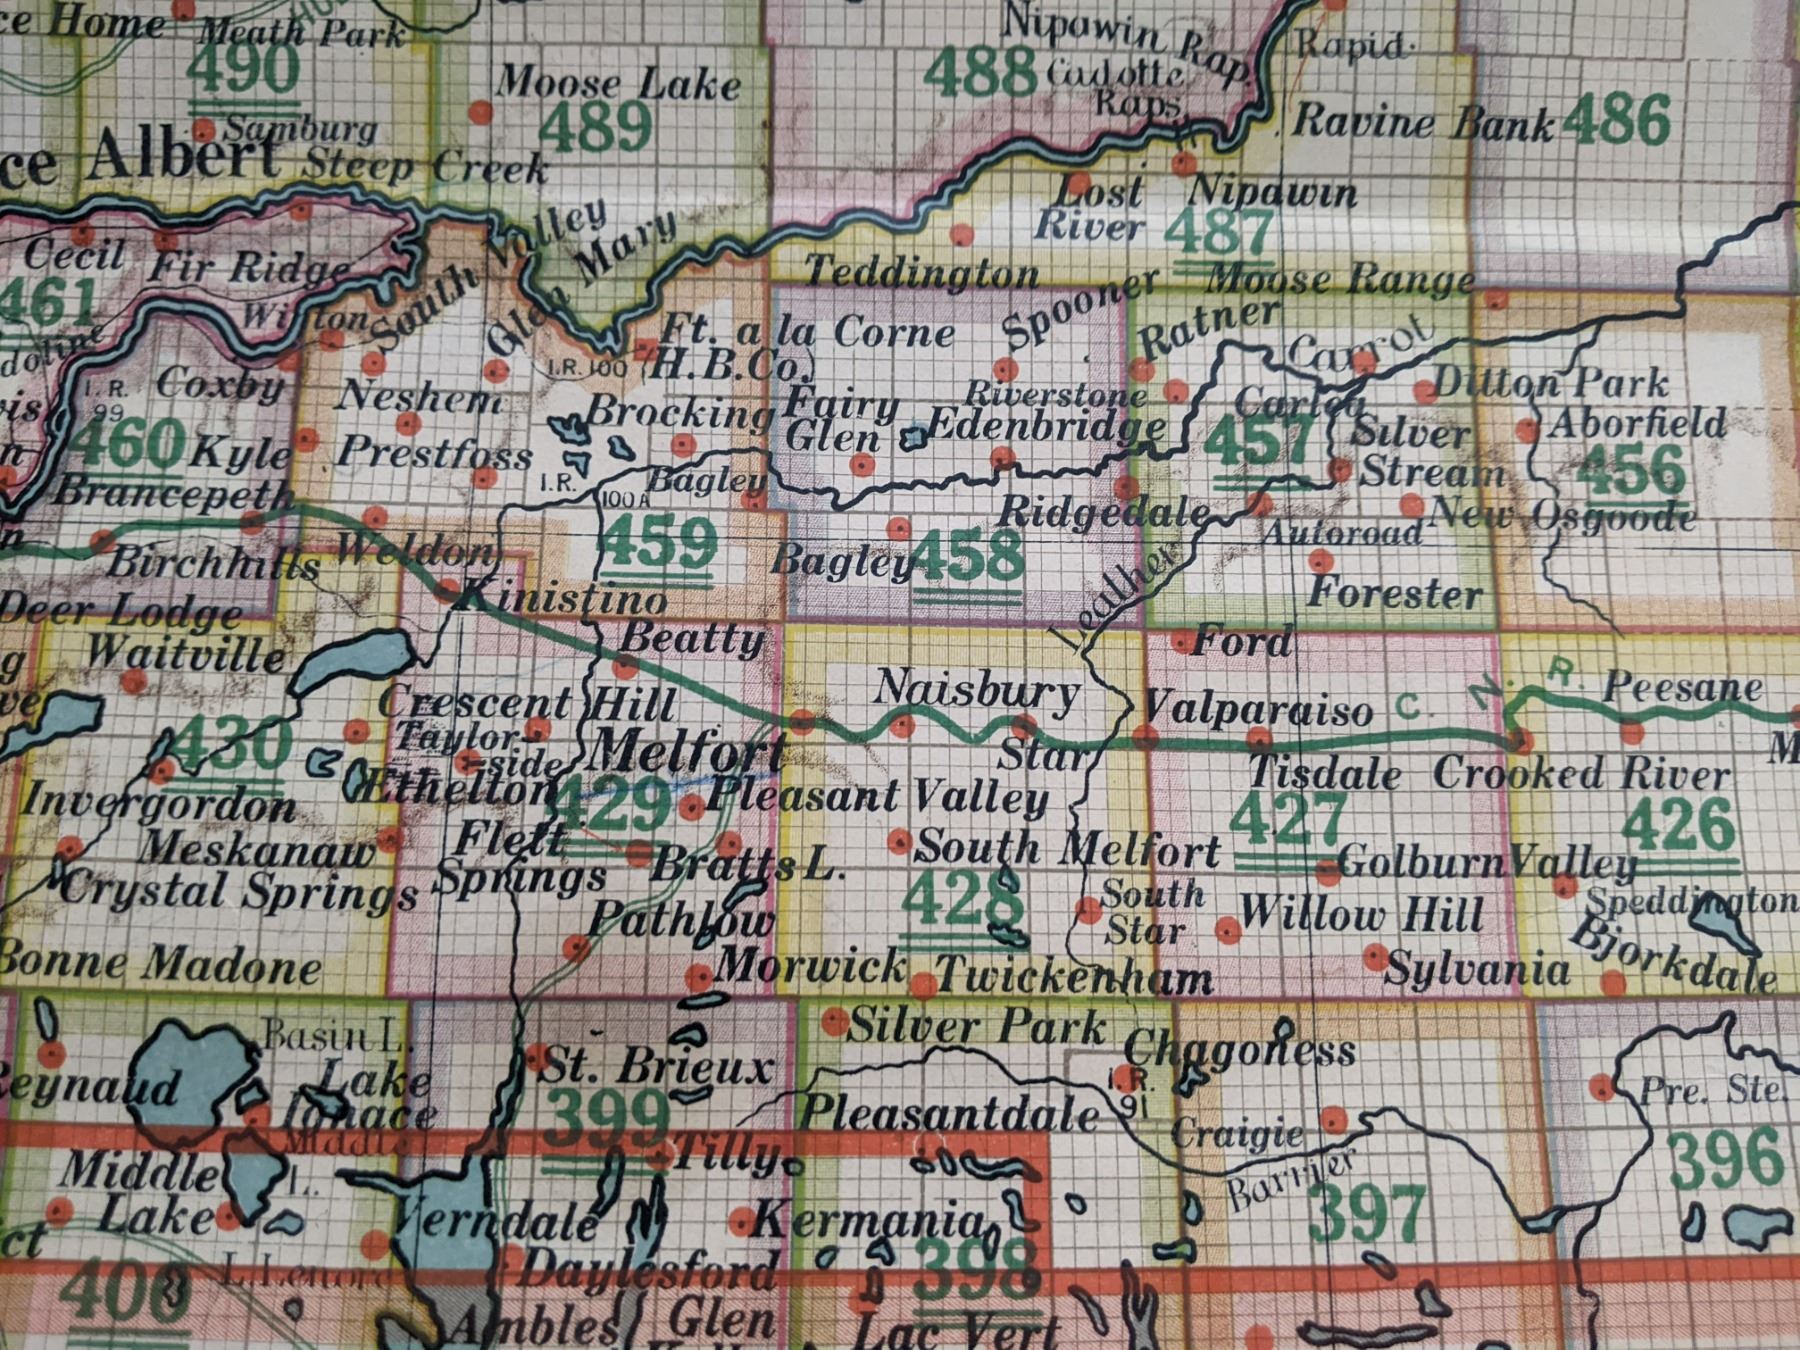 ce Home
Meath Park
490
Moose Lake
489
488
Nipawin Rap.
Cadotte
Raps.
Rapid
Ravine Bank
486
Samburg
ce Albert
Steep Creek
Lost
River
Nipawin
487
Cecil
Fir Ridge
461
South Valley
Glen Mary
Teddington
Spooner
Moose Range
Ratner
Carrot
Ft. a la Corne
(H.B.Co.)
I.R. 100
I.R.
99
Coxby
Neshem
Brocking
Fairy
Glen
Riverstone
Edenbridge
Carlea
457
Ditton Park
Silver
Stream
Aborfield
456
460
Kyle
Prestfoss
Brancepeth
I.R.
100A
Bagley
459
Bagley
458
Ridgedale
Autoroad
New Osgoode
Birchhills
Weldon
Kinistino
Leather
Forester
Deer Lodge
Waitville
Beatty
Ford
Naisbury
Valparaiso
C. N. R.
Peesane
Crescent Hill
430
Taylor-
side
Melfort
Star
Tisdale
Crooked River
Invergordon
Ethelton
429
Pleasant Valley
427
426
Meskanaw
Flett
Springs
Bratts L.
South Melfort
Golburn Valley
Crystal Springs
428
South
Star
Willow Hill
Speddington
Bjorkdale
Pathlow
Bonne Madone
Morwick
Twickenham
Sylvania
Basin L.
Silver Park
Chagoness
Reynaud
Lake
Ignace
St. Brieux
399
I.R.
91
Pre. Ste.
Pleasantdale
Craigie
396
Middle
L.
Middle
Lake
Tilly
Barrier
397
Verndale
Kermania
398
ct
400
L. Lenore
Daylesford
Ambles
Glen
Lac Vert